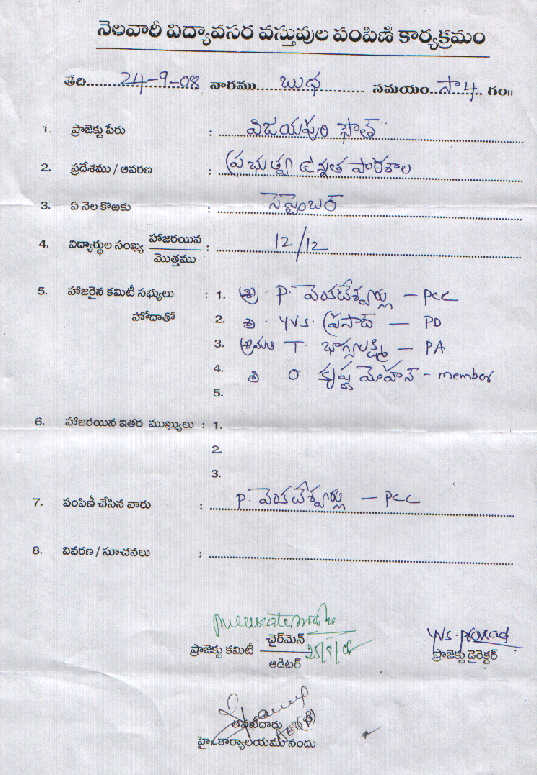 నెలవారీ విద్యావసర వస్తువుల పంపిణి కార్యక్రమం
తేది 24-9-08 వారము బుధ సమయం సా 4 గం॥
1. ప్రాజెక్టు పేరు : విజయపురి సౌత్
2. ప్రదేశము / ఆవరణ : ప్రభుత్వ ఉన్నత పాఠశాల
3. ఏ నెల కొఱకు : సెప్టెంబర్
4. విద్యార్థుల సంఖ్య హాజరయిన / మొత్తము : 12/12
5. హాజరైన కమిటీ సభ్యులు : 1. శ్రీ P. వెంకటేశ్వర్లు - PCC
హోదాతో 2. శ్రీ YVS. ప్రసాద్ - PD
3. శ్రీమతి T భాగ్యలక్ష్మి - PA
4. శ్రీ O కృష్ణ మోహన్ - member
5.
6. హాజరయిన ఇతర ముఖ్యులు : 1.
2.
3.
7. పంపిణీ చేసిన వారు : P. వెంకటేశ్వర్లు - PCC
8. వివరణ / సూచనలు :
ప్రాజెక్టు కమిటీ ఛైర్మెన్ / ఆడిటర్
YVS. Prasad
ప్రాజెక్టు డైరెక్టర్
హై॥కార్యాలయము నందు